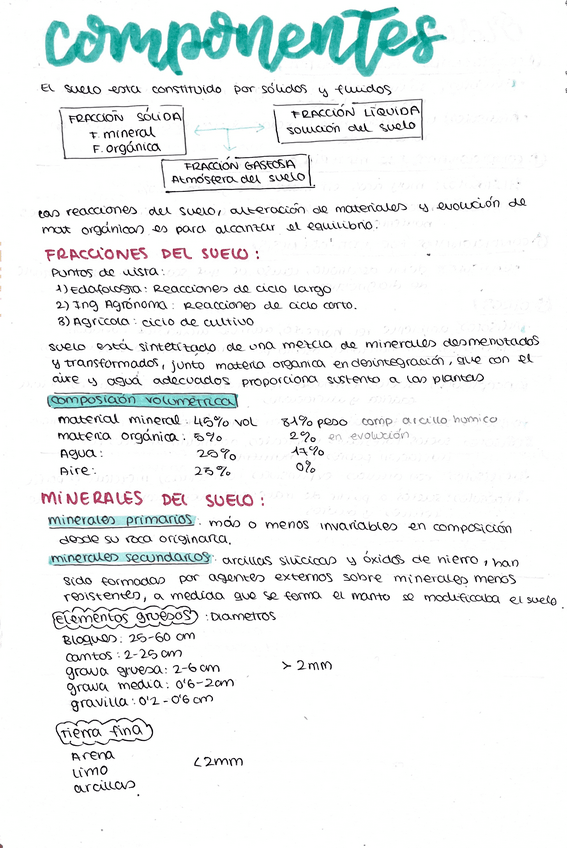 componentes
El suelo esta constituido por sólidos y fluidos
FRACCIÓN SÓLIDA
F. mineral
F. orgánica
FRACCIÓN LÍQUIDA
solución del suelo
FRACCIÓN GASEOSA
Atmósfera del suelo
Las reacciones del suelo, alteración de materiales y evolución de
mat orgánicas es para alcanzar el equilibrio.
FRACCIONES DEL SUELO:
Puntos de vista:
1) Edafología: Reacciones de ciclo largo
2) Ing Agrónoma: Reacciones de ciclo corto.
3) Agrícola: ciclo de cultivo
suelo está sintetizado de una mezcla de minerales desmenuzados
y transformados, junto materia organica en desintegración, que con el
aire y agua adecuados proporciona sustento a las plantas
composición volumétrica
material mineral: 45% vol 81% peso comp arcillo humico
materia orgánica: 5% 2% en evolución
Agua: 25% 17%
Aire: 25% 0%
MINERALES DEL SUELO:
minerales primarios: más o menos invariables en composición
desde su roca originaria.
minerales secundarios: arcillas silícicas y óxidos de hierro, han
sido formadas por agentes externos sobre minerales menos
resistentes, a medida que se forma el manto se modificaba el suelo.
elementos gruesos: Diametros
Bloques: 25-60 cm
cantos: 2-25 cm
grava gruesa: 2-6 cm > 2mm
grava media: 0'6-2cm
gravilla: 0'2-0'6 cm
tierra fina
Arena
Limo <2mm
arcillas.